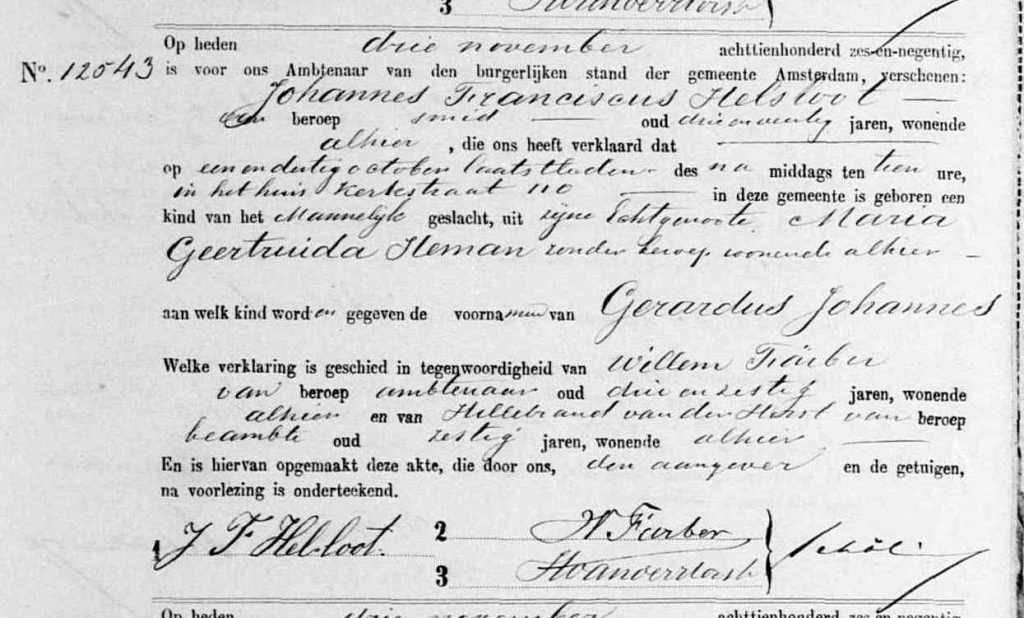 3
Op heden drie november achttienhonderd zes-en-negentig,
No. 12543 is voor ons Ambtenaar van den burgerlijken stand der gemeente Amsterdam, verschenen:
Johannes Franciscus Helsloot
van beroep smid oud drieentwintig jaren, wonende
alhier, die ons heeft verklaard dat
op eenendertig october laatstleden des na middags ten tien ure,
in het huis Kerkstraat 110 in deze gemeente is geboren een
kind van het Mannelijk geslacht, uit zijne Echtgenoote Maria
Geertruida Heman zonder beroep wonende alhier
aan welk kind worden gegeven de voornamen van Gerardus Johannes
Welke verklaring is geschied in tegenwoordigheid van Willem Färber
van beroep ambtenaar oud drie en zestig jaren, wonende
alhier en van Hillebrand van der Horst van beroep
beambte oud zestig jaren, wonende alhier
En is hiervan opgemaakt deze akte, die door ons, den aangever en de getuigen,
na voorlezing is onderteekend.
1 J F Helsloot. 2 W Färber
3 HvanderHorst
Op heden drie november achttienhonderd zes-en-negentig,